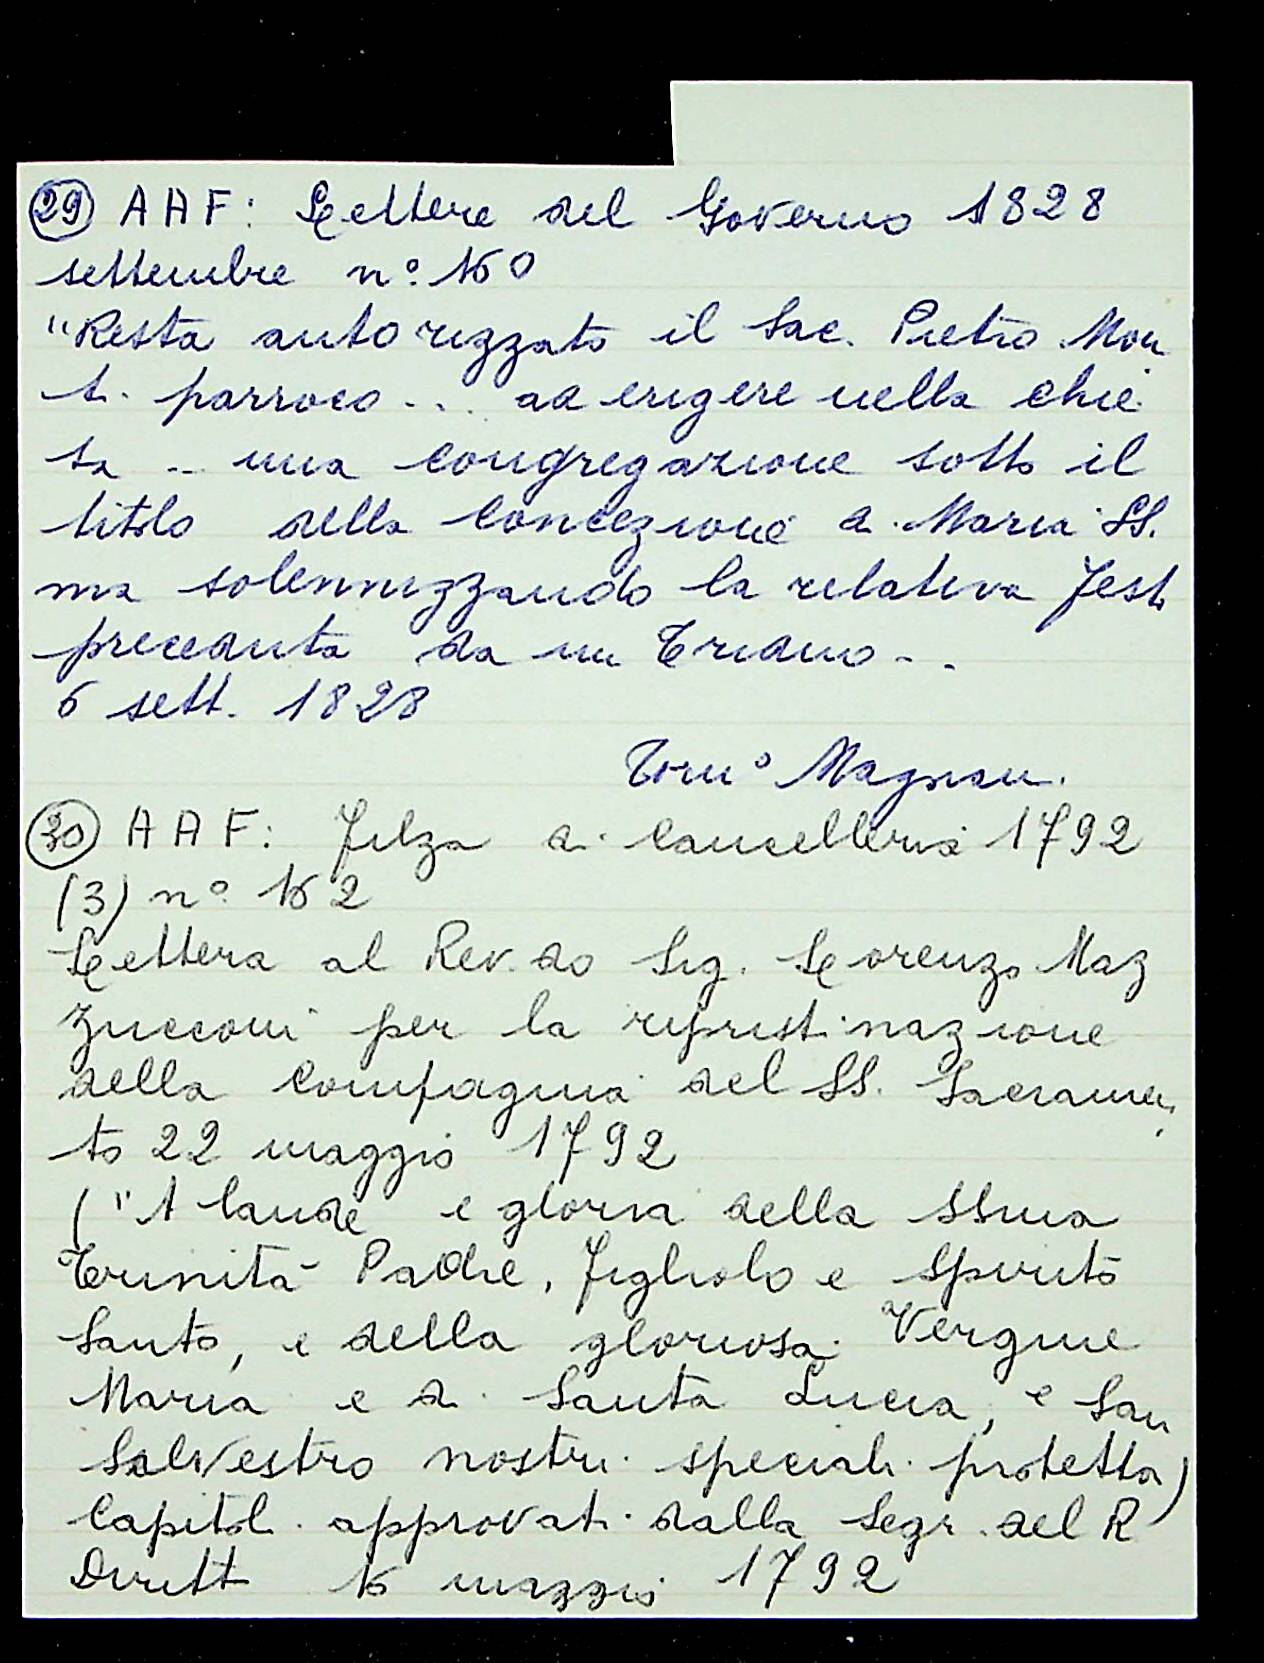 29 AAF: Lettere del Governo 1828
settembre n° 160
"Resta autorizzato il Sac. Pietro Mon
ti parroco ... ad erigere nella chie
sa .. una congregazione sotto il
titolo della Concezione di Maria SS.
ma solennizzando la relativa festa
preceduta da un Triduo ..
6 sett. 1828
Tom° Magnani
30 AAF: Filza di Cancelleria 1792
(3) n° 162
Lettera al Rev.do Sig. Lorenzo Maz
zucconi per la ripristinazione
della Compagnia del SS. Sacramen
to 22 maggio 1792
("A laude e gloria della SSma
Trinità Padre, Figliolo e Spirito
Santo, e della gloriosa Vergine
Maria e di Santa Lucia, e San
Salvestro nostri speciali protettori)
Capitoli approvati dalla Segr. del R
Diritto 16 maggio 1792